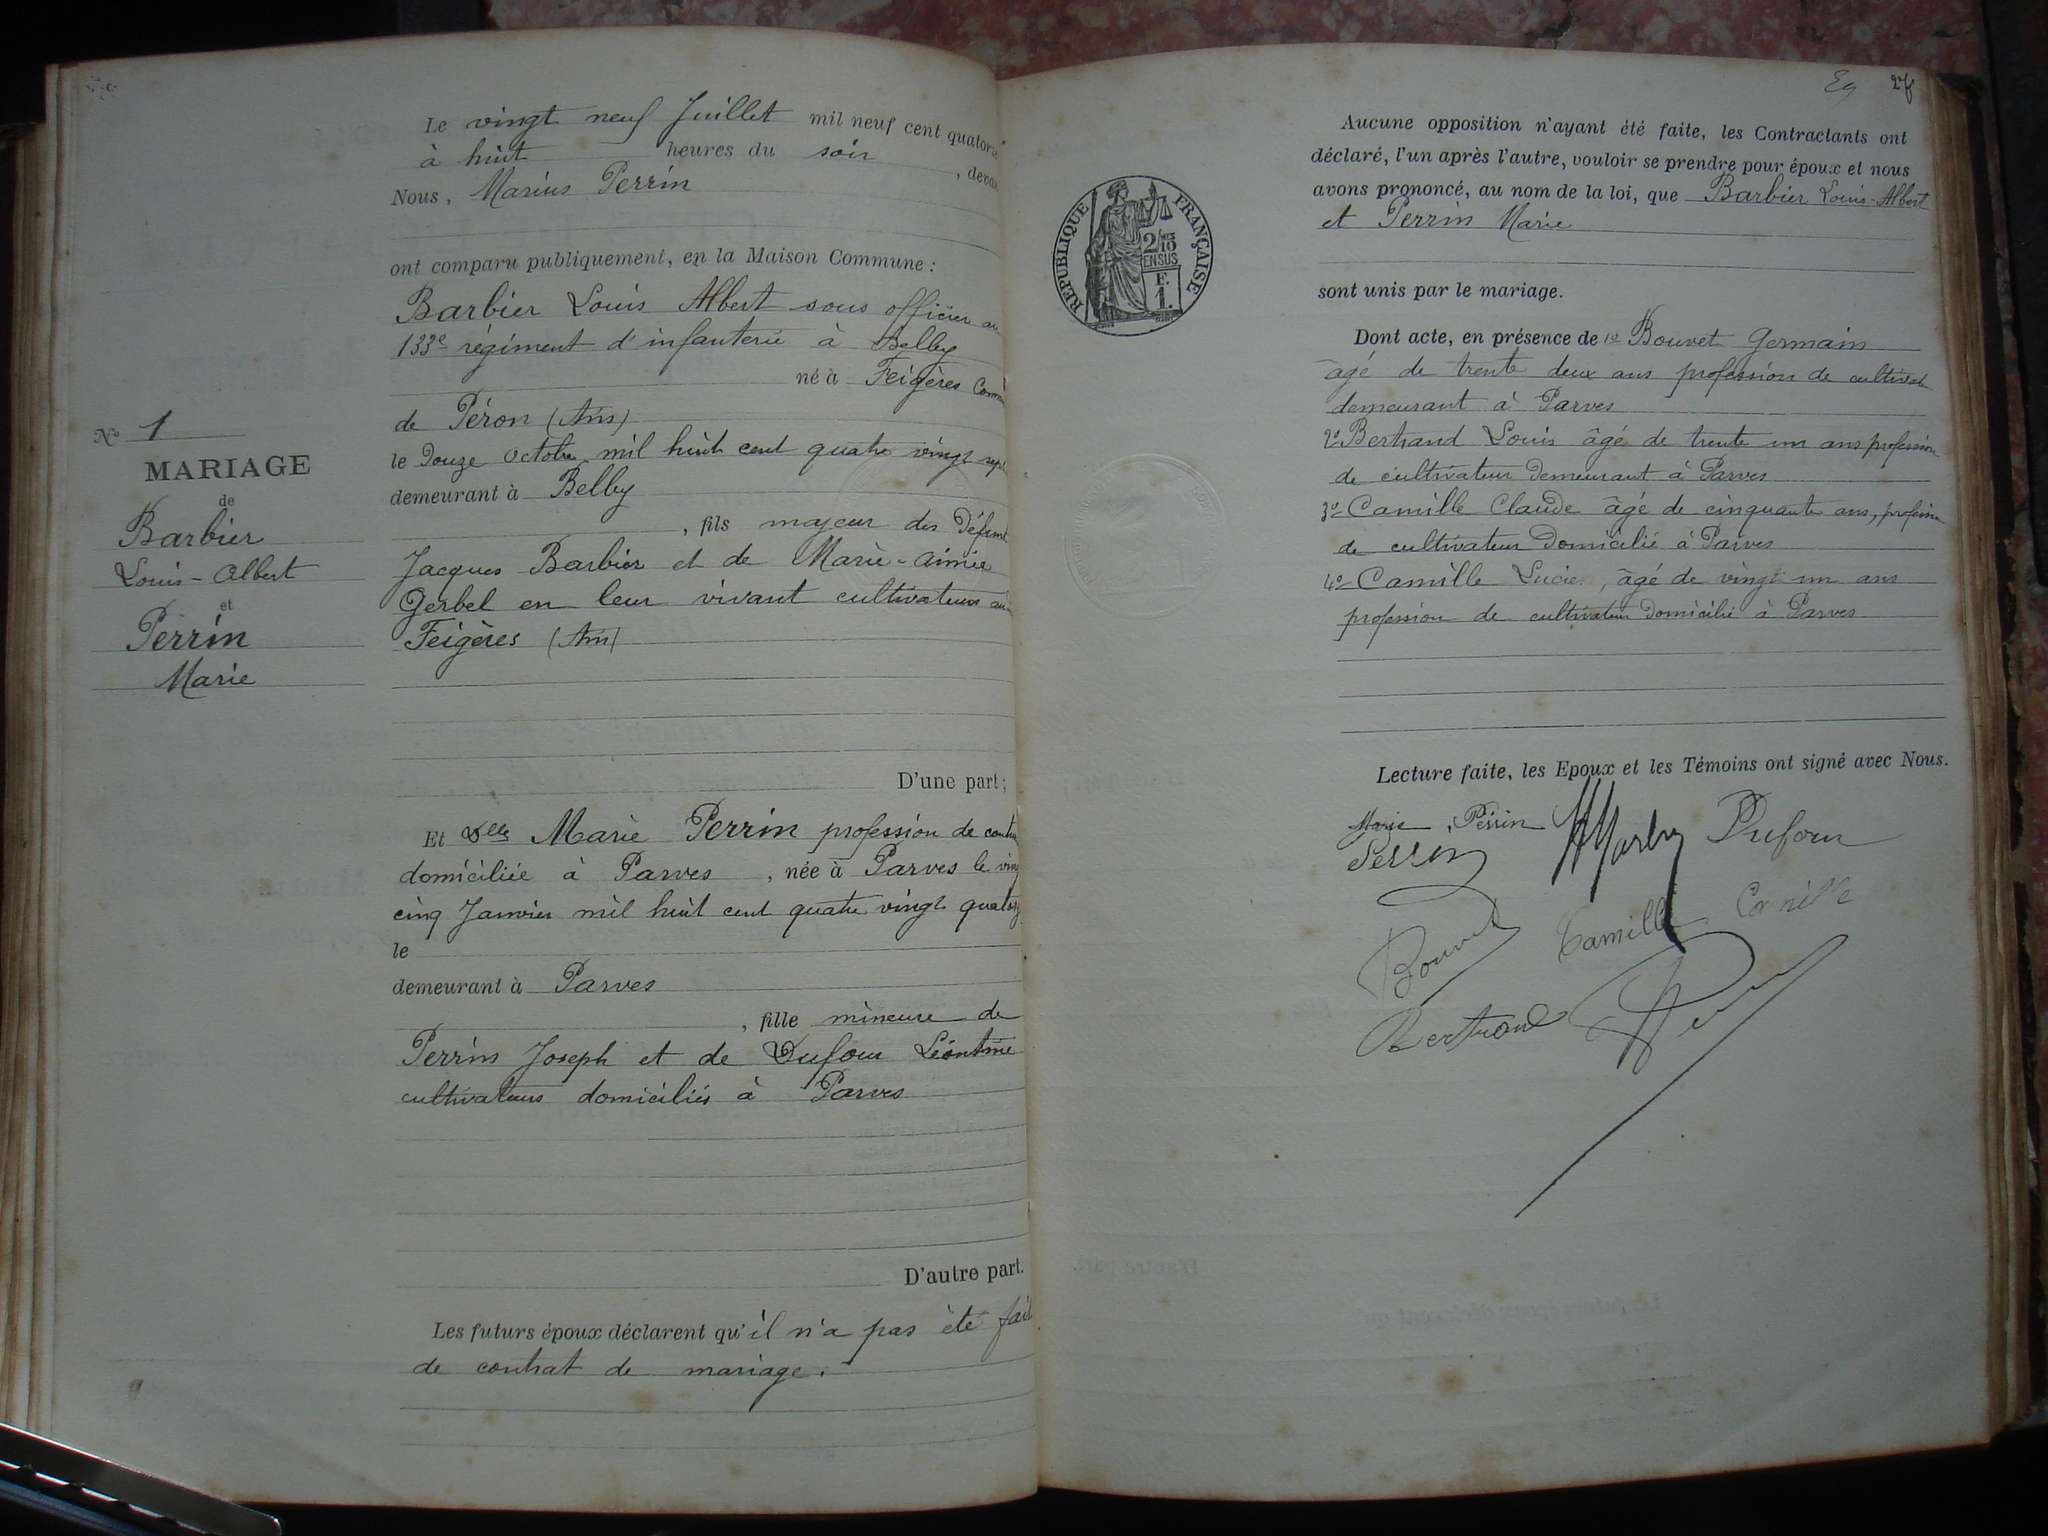 Le vingt neuf Juillet mil neuf cent quatorze
à huit heures du soir, devan
Nous, Marius Perrin
ont comparu publiquement, en la Maison Commune :
Barbier Louis Albert sous officier au
133e régiment d'infanterie à Belley
né à Feigères Comm
de Péron (Ain)
le Douze Octobre mil huit cent quatre vingt sept
demeurant à Belley
, fils majeur des Défunt
Jacques Barbier et de Marie-Aimée
Gerbel en leur vivant cultivateurs à
Feigères (Ain)
D'une part;
No 1
MARIAGE
de
Barbier
Louis-Albert
et
Perrin
Marie
Et Delle Marie Perrin profession de
domiciliée à Parves, née à Parves le vin
cinq Janvier mil huit cent quatre vingt quatorz
le
demeurant à Parves
, fille mineure de
Perrin Joseph et de Dufour Léontine
cultivateurs domiciliés à Parves
D'autre part.
Les futurs époux déclarent qu'il n'a pas été fait
de contrat de mariage.
Aucune opposition n'ayant été faite, les Contractants ont
déclaré, l'un après l'autre, vouloir se prendre pour époux et nous
avons prononcé, au nom de la loi, que Barbier Louis-Albert
et Perrin Marie
sont unis par le mariage.
REPUBLIQUE FRANÇAISE
2/10
EN SUS
F.
1.
Dont acte, en présence de 1o Bouvet Germain
âgé de trente deux ans profession de cultivat
demeurant à Parves
2o Bertrand Louis âgé de trente un ans profession
de cultivateur Demeurant à Parves
3o Camille Claude âgé de cinquante ans, profession
de cultivateur Domicilié à Parves
4o Camille Lucien, âgé de vingt un ans
profession de cultivateur Domicilié à Parves
Lecture faite, les Epoux et les Témoins ont signé avec Nous.
Marie Perrin Dufour
Perrin
Bouvet Camille Camille
Bertrand